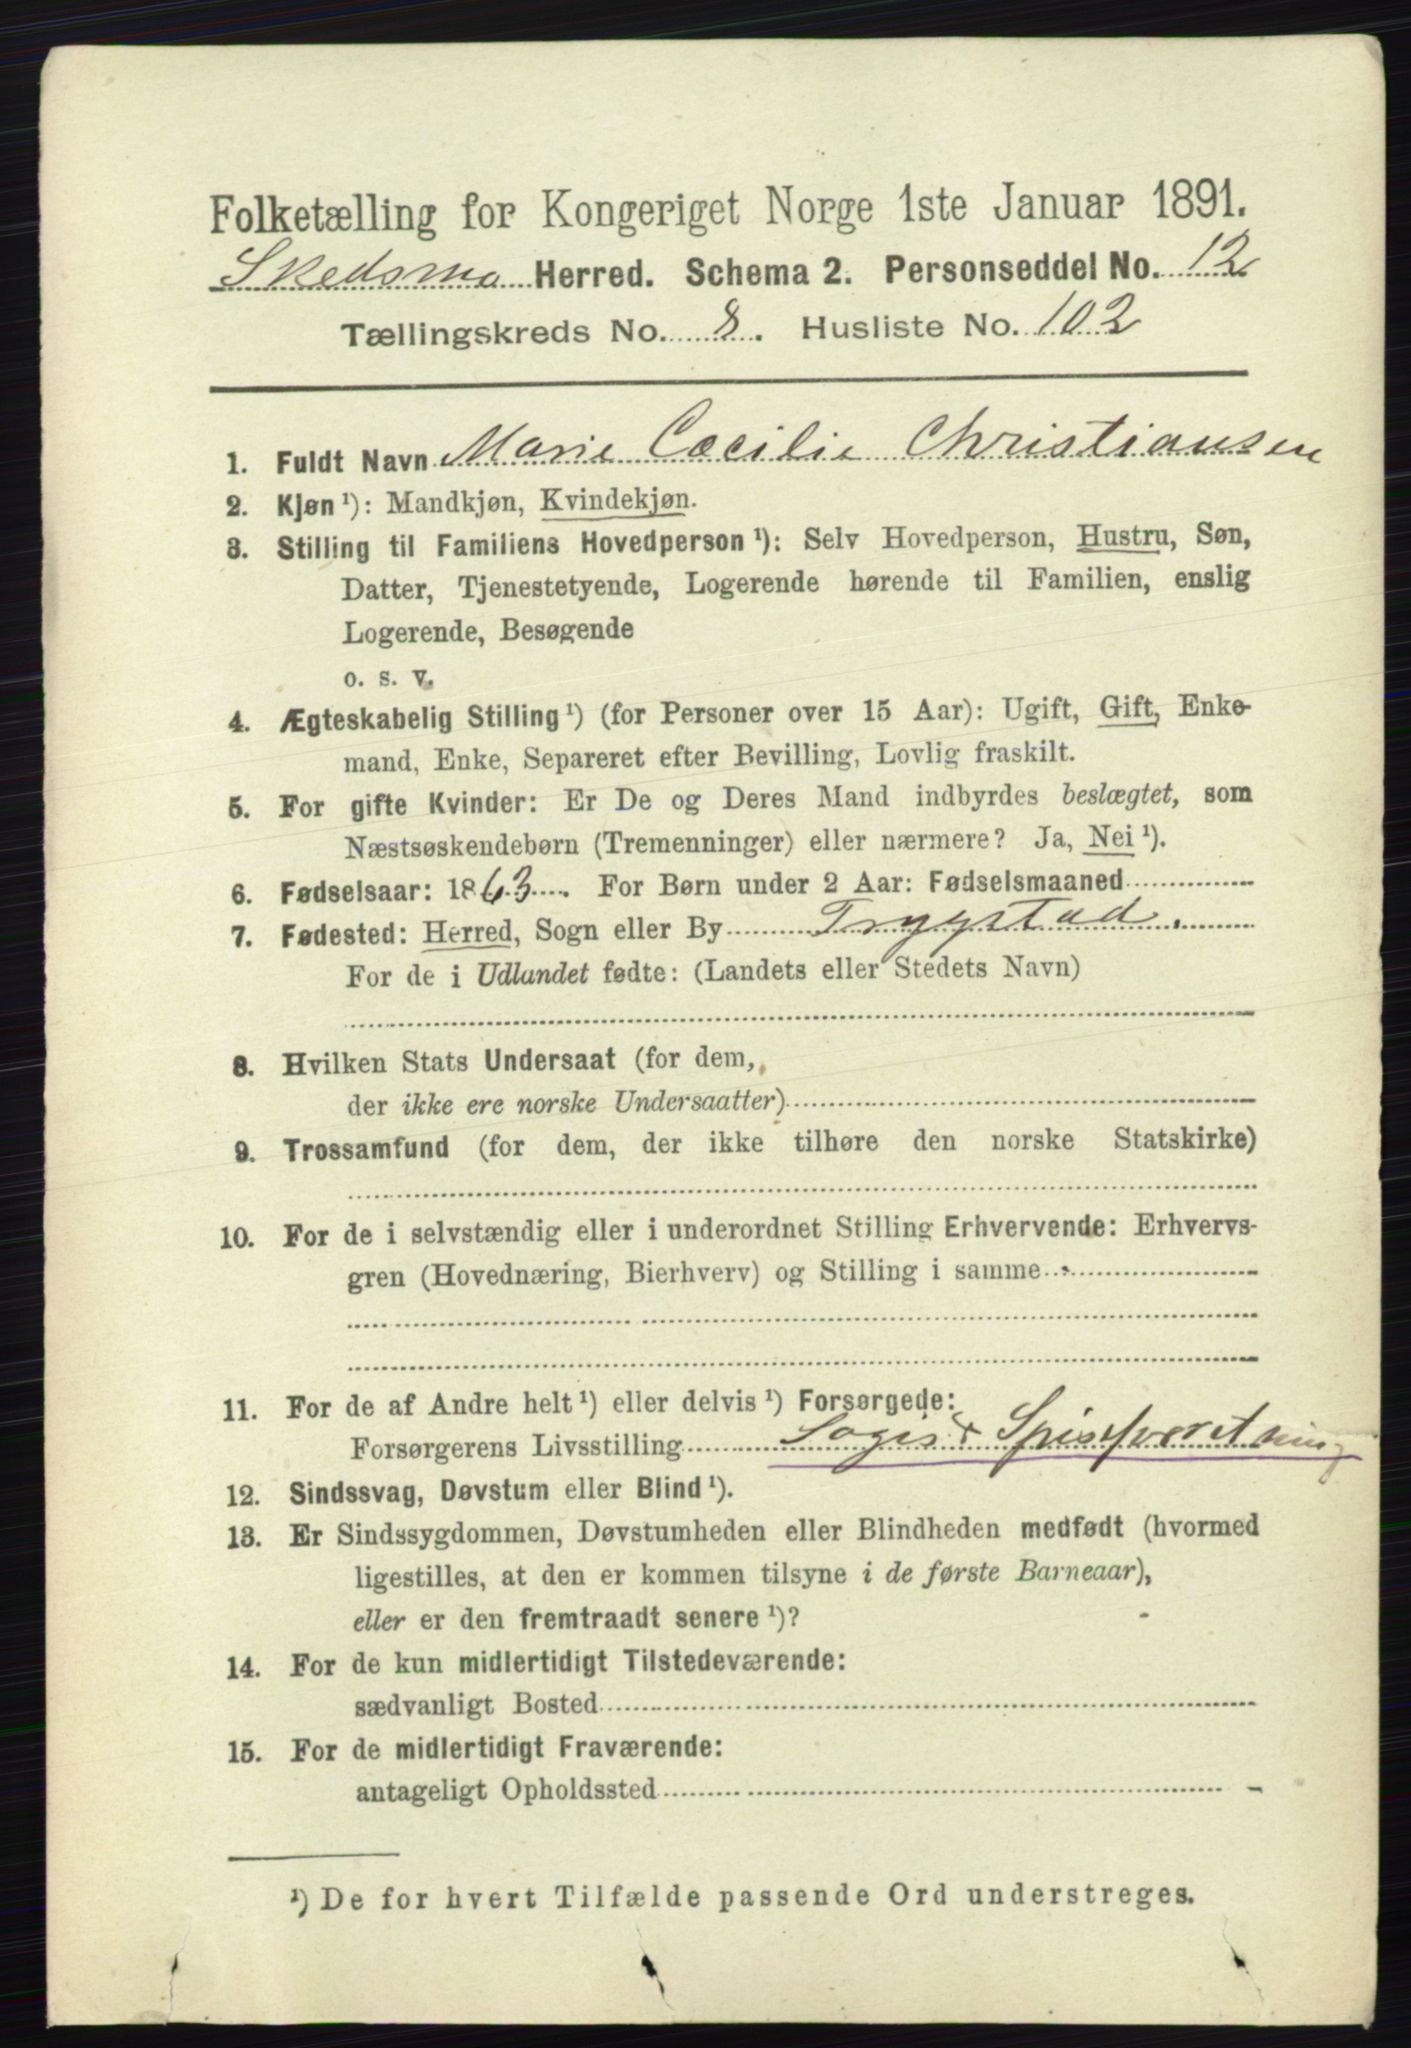 Folketælling for Kongeriget Norge 1ste Januar 1891.
Skedsmo Herred. Schema 2. Personseddel No. 12
Tællingskreds No. 8. Husliste No. 102
1. Fuldt Navn Marie Cæcilie Christiansen
2. Kjøn ¹): Mandkjøn, Kvindekjøn.
3. Stilling til Familiens Hovedperson ¹): Selv Hovedperson, Hustru, Søn,
Datter, Tjenestetyende, Logerende hørende til Familien, enslig
Logerende, Besøgende
o. s. v.
4. Ægteskabelig Stilling ¹) (for Personer over 15 Aar): Ugift, Gift, Enke-
mand, Enke, Separeret efter Bevilling, Lovlig fraskilt.
5. For gifte Kvinder: Er De og Deres Mand indbyrdes beslægtet, som
Næstsøskendebørn (Tremenninger) eller nærmere? Ja, Nei ¹).
6. Fødselsaar: 1863. For Børn under 2 Aar: Fødselsmaaned
7. Fødested: Herred, Sogn eller By Trygstad.
For de i Udlandet fødte: (Landets eller Stedets Navn)
8. Hvilken Stats Undersaat (for dem,
der ikke ere norske Undersaatter)
9. Trossamfund (for dem, der ikke tilhøre den norske Statskirke)
10. For de i selvstændig eller i underordnet Stilling Erhvervende: Erhvervs-
gren (Hovednæring, Bierhverv) og Stilling i samme
11. For de af Andre helt ¹) eller delvis ¹) Forsørgede:
Forsørgerens Livsstilling Logis & Spiseforretning
12. Sindssvag, Døvstum eller Blind ¹).
13. Er Sindssygdommen, Døvstumheden eller Blindheden medfødt (hvormed
ligestilles, at den er kommen tilsyne i de første Barneaar),
eller er den fremtraadt senere ¹)?
14. For de kun midlertidigt Tilstedeværende:
sædvanligt Bosted
15. For de midlertidigt Fraværende:
antageligt Opholdssted
¹) De for hvert Tilfælde passende Ord understreges.